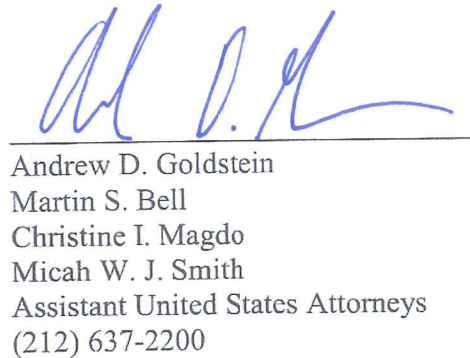 Andrew D. Goldstein
Martin S. Bell
Christine I. Magdo
Micah W. J. Smith
Assistant United States Attorneys
(212) 637-2200